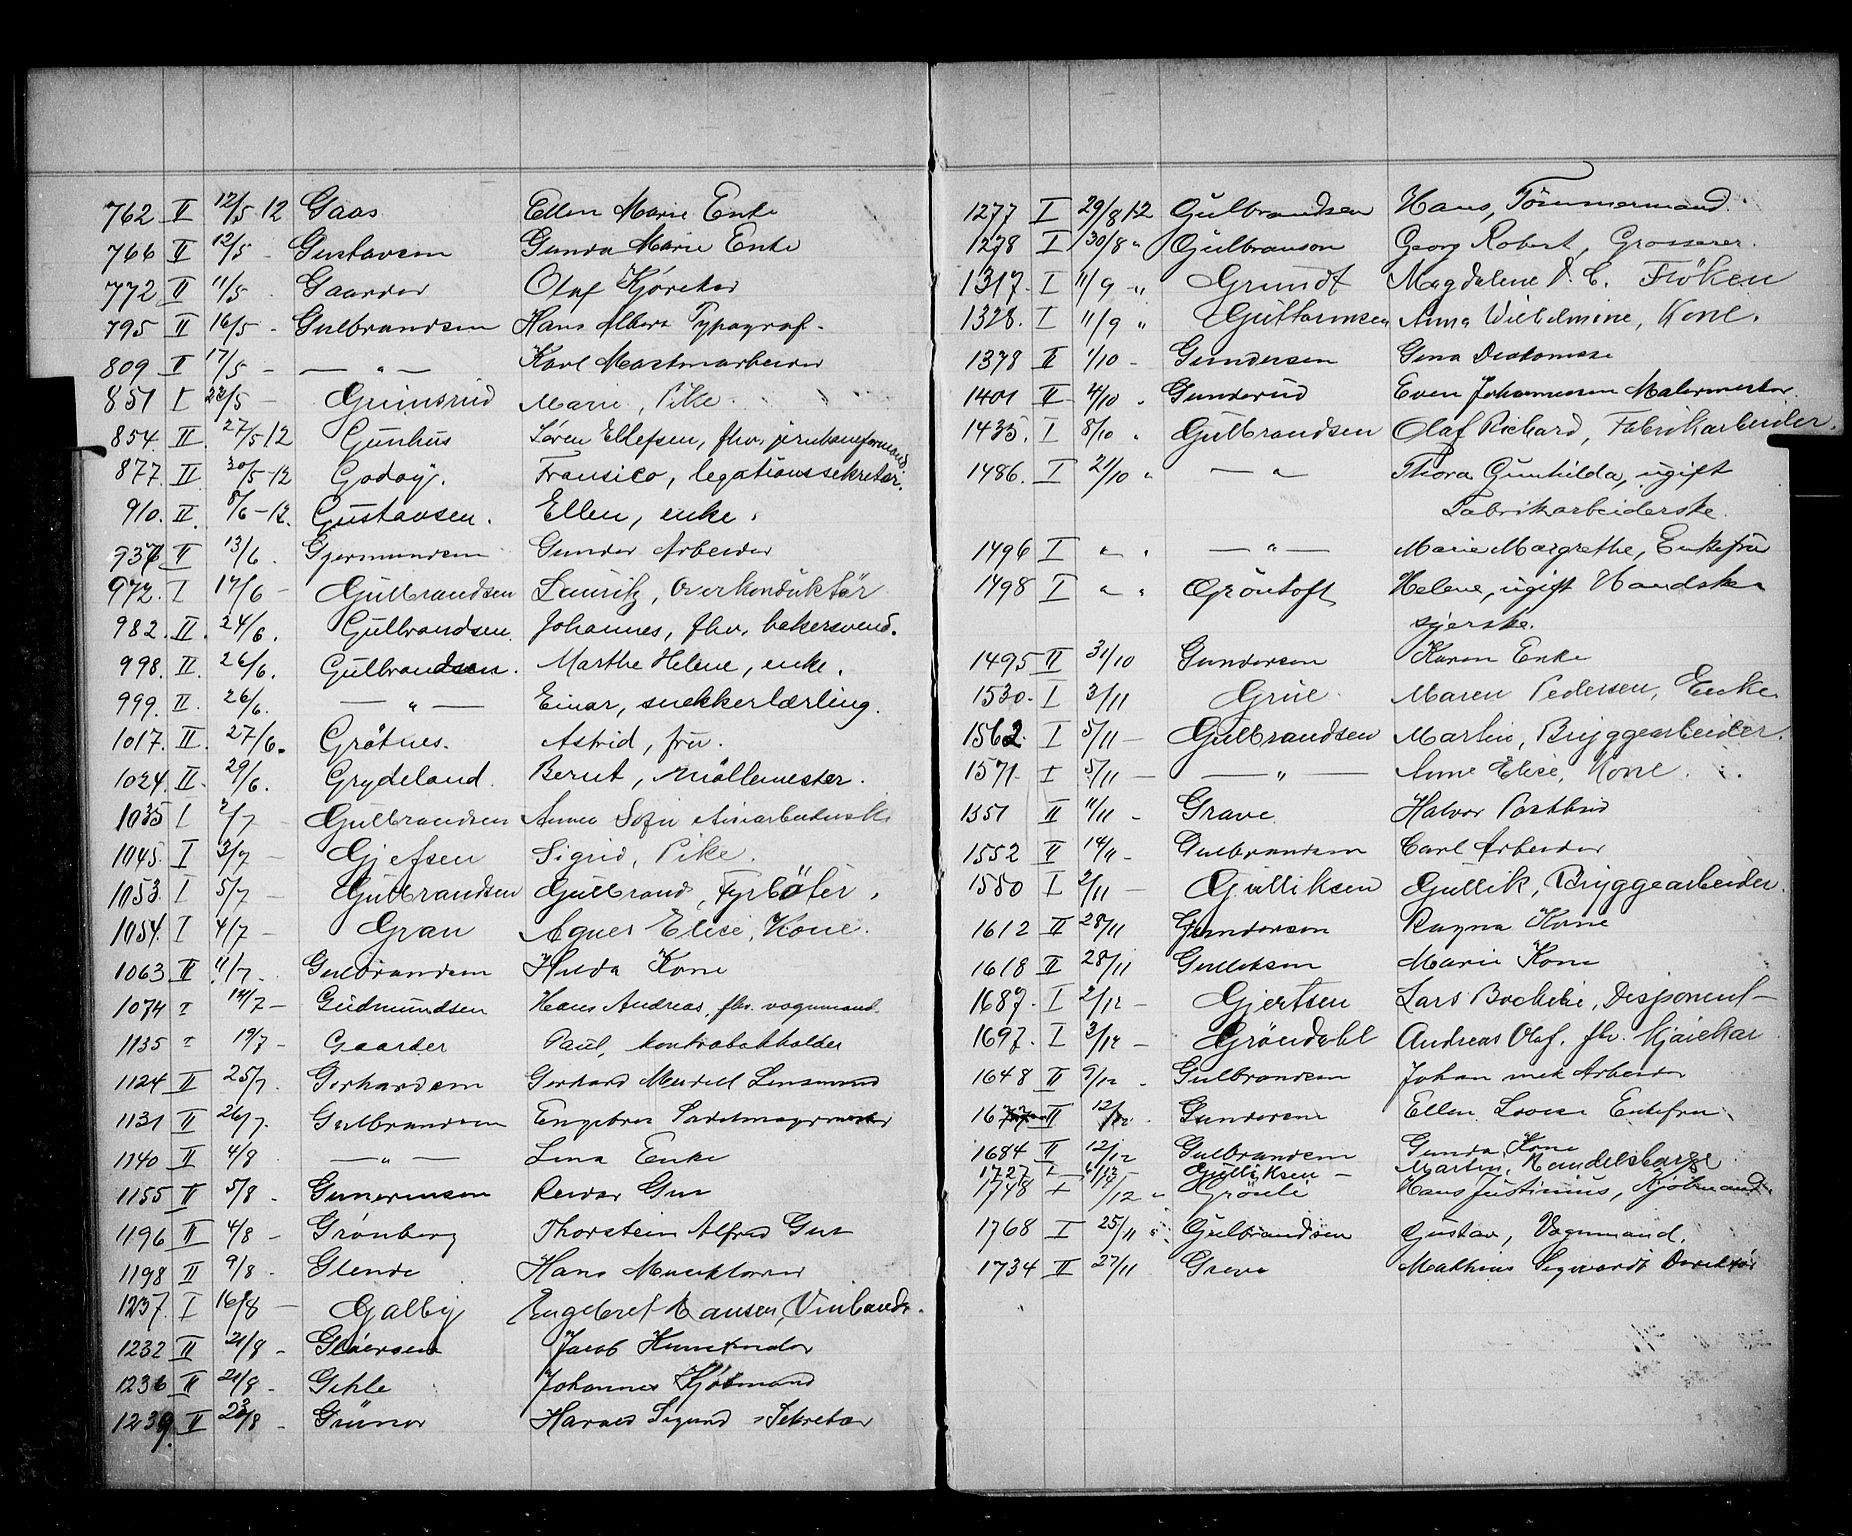 762 II 12/5 12 Gaas Ellen Marie Enke
766 II 12/5 - Gustavsen Gunda Marie Enke
772 II 11/5 . Gaarder Olaf Kjørekar
795 II 16/5 - Gulbrandsen Hans Albert Typograf.
809 II 17/5 - — „ — Karl
851 I 22/5 — Grimsrud Marie, Pike.
854. II. 27/5 12 Gunhus Søren Ellefsen, fhv. jernbaneformand.
877. II 30/5-12 Godoy. Fransico, legationssekretær.
910. II. 8/6-12. Gustavsen. Ellen, enke.
937 II 13/6 . Gjermundsen Gunder Arbeider
972. I 17/6 - Gulbrandsen Lauritz, Overkonduktör
982. II. 24/6. Gulbrandsen. Johannes, fhv. bakersvend.
998. II. 26/6. Gulbrandsen. Marthe Helene, enke.
999. II. 26/6. — „ — Einar, snekkerlærling.
1017. II. 27/6. Gråtnes. Astrid, frü.
1024. II. 29/6. Grydeland. Bernt, Møllemester.
1035 I 2/7 - Gulbrandsen Anna Sofie
1045. I 3/7 — Gjefsen Sigrid, Pike.
1053. I 5/7 — Gulbrandsen Gulbrand, Fyrböter.
1054. I 4/7 — Gran Agnes Elise, Kone.
1063 II 11/7. Gulbrandsen Hilda Kone
1074 I 14/7 — Gudmundsen Hans Andreas, fhv. vognmand.
1135 I 19/7 — Gaarder Paul, kontrabokholder
1124 II 25/7. Gerhardsen Gerhard Lensmand
1131 II 26/7. Gulbrandsen Engebret
1140 II 4/8 — „ — Lina Enke
1155 II 5/8 . Gunerinsen Reidar Gut
1196 II 4/8 - Grønberg Thorstein Alfred Gut
1198 II 9/8 . Glende Hans
1237. I 16/8 — Galby Engebret Hansen,
1232 II 21/8 - Jacob Kunstmaler
1236 II 21/8 - Gehle Johannes Kjøbmand
1239. II 23/8 - Grüner Harald Sigurd Sekretær
1277 I 29/8 12 Gulbrandsen Hans, Tömmermand.
1278 I 30/8 „ Gulbranson Georg Robert, Grosserer.
1317. I 11/9 „ Grundt Magdalene D. C. Fröken
1328. I 11/9 „ Guttormsen Anna Wilhelmine, Kone.
1378 II 1/10 - Gundersen Gina Diakonisse
1401 II 4/10 . Gunderud Even Johannesen Malermester
1435. I 8/10 . Gulbrandsen Olaf Rickard, Fabrikarbeider.
1486. I 21/10 „ — „ Thora Gunhilda, ugift
Fabrikarbeiderske.
1496 I „ „ — „ — Marie Margrethe, Enkefru
1498 I „ „ Gröntoft Helene, ugift Handske
sjerske.
1495 II 31/10 Gundersen Karen Enke
1530. I 3/11 Grue Maren Pedersen, Enke.
1562. I 5/11 — Gulbrandsen Martin, Bryggearbeider.
1571. I 5/11 — — „ — Anne Elise, Kone.
1551 II 11/11 - Grave Halvor Postbud
1552 II 14/11 - Gulbrandsen Carl Arbeider
1580 I 2/11 — Gulliksen Gullik, Bryggearbeider.
1612 II 28/11 Gundersen Ragna Kone
1618 II 28/11 Gulliksen Marie Kone
1687. I 2/12 — Gjertsen Lars Disponent
1697. I 3/12 — Gröndahl Andreas Olaf, fhv. Kjørekar
1648 II 9/12 . Gulbrandsen Johan Arbeider
II 12/12 . Gundersen Ellen Lovise Enkefru
1684 II 12/12 Gulbrandsen Gunda Kone
1727 I Gulliksen — Martin, Handelsborger
1748 I /12 „ Hans Justinius, Kjøbmand.
1768 I 25/11 „ Gulbrandsen Gustav, Vognmand.
1734 II 27/11 Greve Mathias Direktør